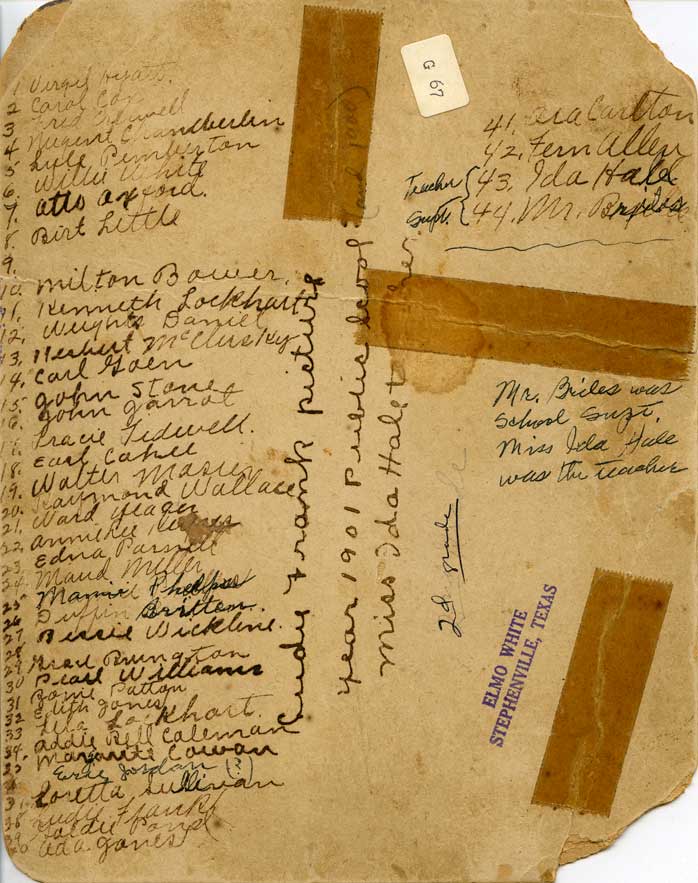 1 Virgil Hyatt.
2 Carol Cox
3 Fred
4 Nugent Chamberlin
5. Lyle Pemberton
6. Willie White
7. Otto Axford.
8. Birt Little
9.
10. Milton Bower.
11. Kenneth Lockhart
12. Wright Daniel
13. Herbert McClusky
14. Carl Goen
15. John Stone
16. John Garrot
17. Tracie Tidwell.
18. Earl Cahill
19. Walter
20. Raymond Wallace
21. Ward Yeager
22. Annie
23. Edna
24. Maud Miller
25. Mamie Phelps
26. Britton.
27. Bessie Wickline.
28
29. Brington
30 Pearl Williams
31 Patton
32 Edith Jones
33 Lila Lockhart.
34. Addie Bell Caleman
35 Margarite Cowan
Jordan (?)
37 Loretta Sullivan
38 Judy Frank
39
40 Ada Jones
41. Ora Carlton
42. Fern Allen
Teacher 43. Ida Hale
Supt. 44. Mr. Brides
Judy Frank picture
year 1901 Public Scool
Miss Ida Hale teacher
2d grade
Mr. Brides was
School Supt.
Miss Ida Hale
was the teacher
G 67
ELMO WHITE
STEPHENVILLE, TEXAS